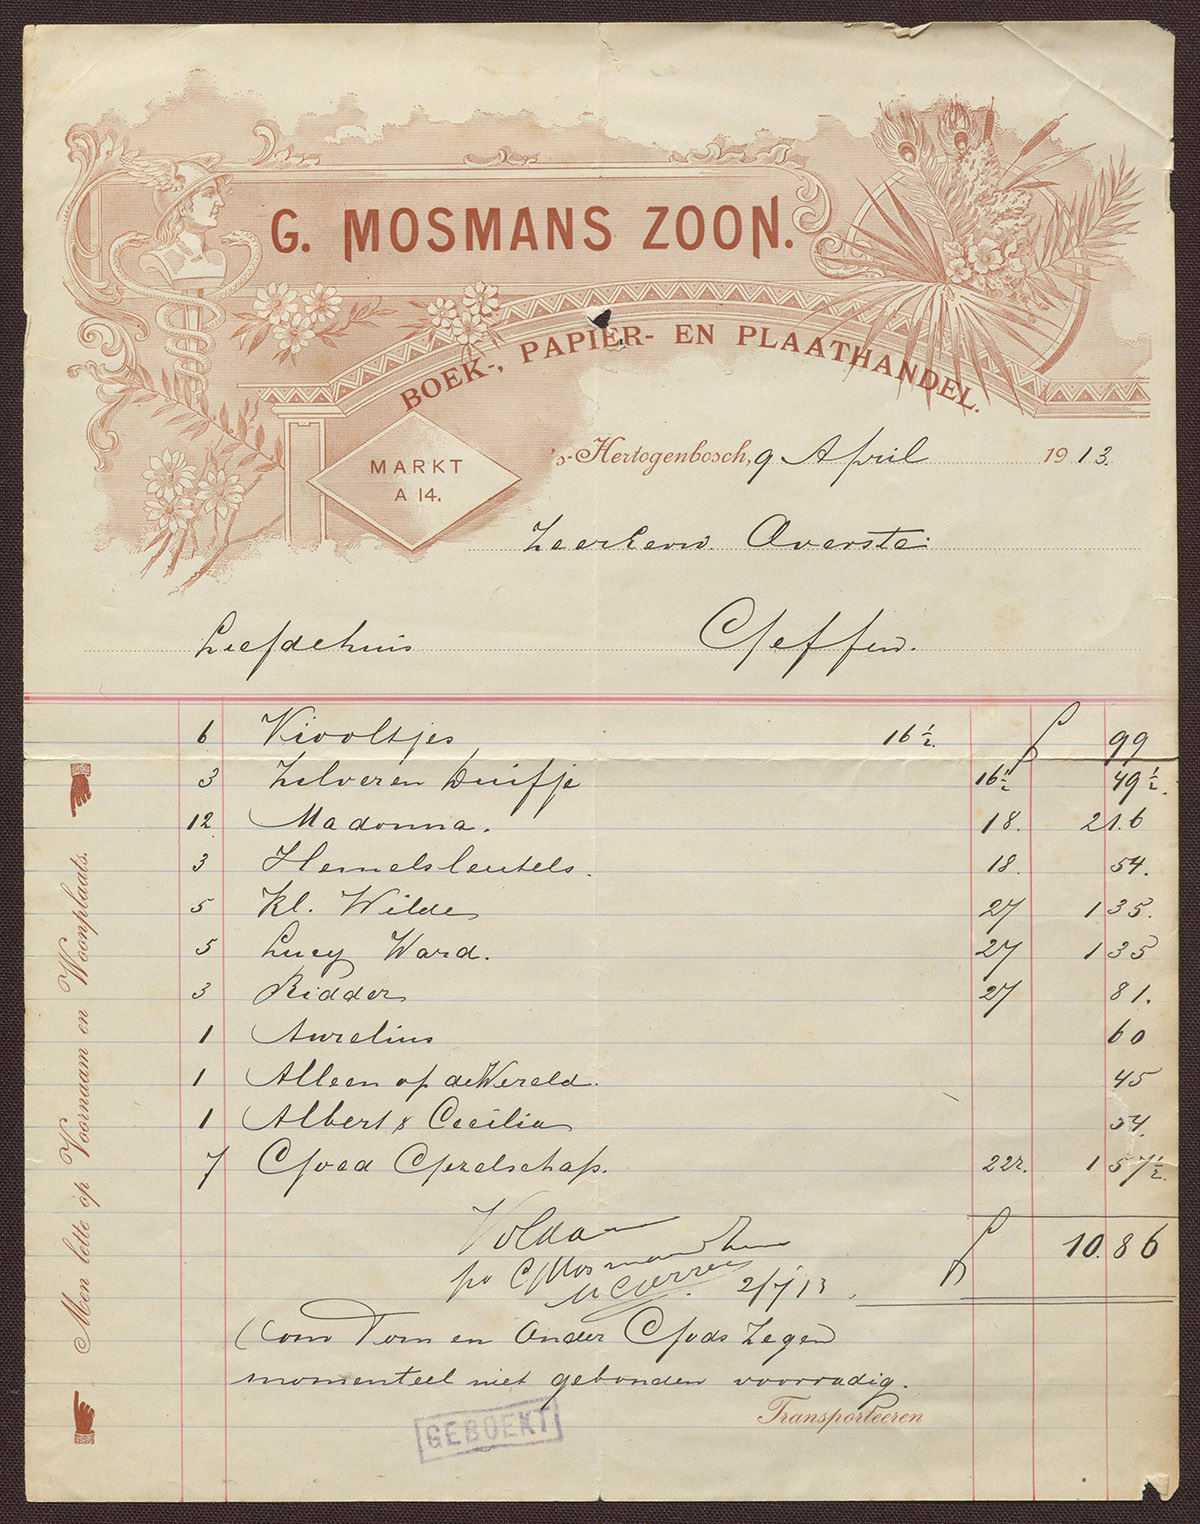 G. MOSMANS ZOON.
BOEK-, PAPIER- EN PLAATHANDEL.
MARKT
A 14.
's-Hertogenbosch, 9 April 1913.
Zeereerw. Overste
Liefdehuis Geffen.
6 Viooltjes 16 1/2. f 99
3 Zilveren Duifje 16 1/2 49 1/2.
12 Madonna. 18. 2 1.6
3 Hemelsleutels. 18. 54.
5 Kl. Wilde 27 1 35.
5 Lucy Ward. 27 1 35
3 Ridder 27 81.
1 Aurelius 60
1 Alleen op de Wereld. 45
1 Albert & Cecilia 54.
7 Goed Gezelschap. 22 1 57 1/2.
Voldaan f 10.86
po G Mosmans Zoon
2/7/13
Oom Tom en Onder Gods Zegen
momenteel niet gebonden voorradig.
Transporteeren
GEBOEKT
Men lette op Voornaam en Woonplaats.